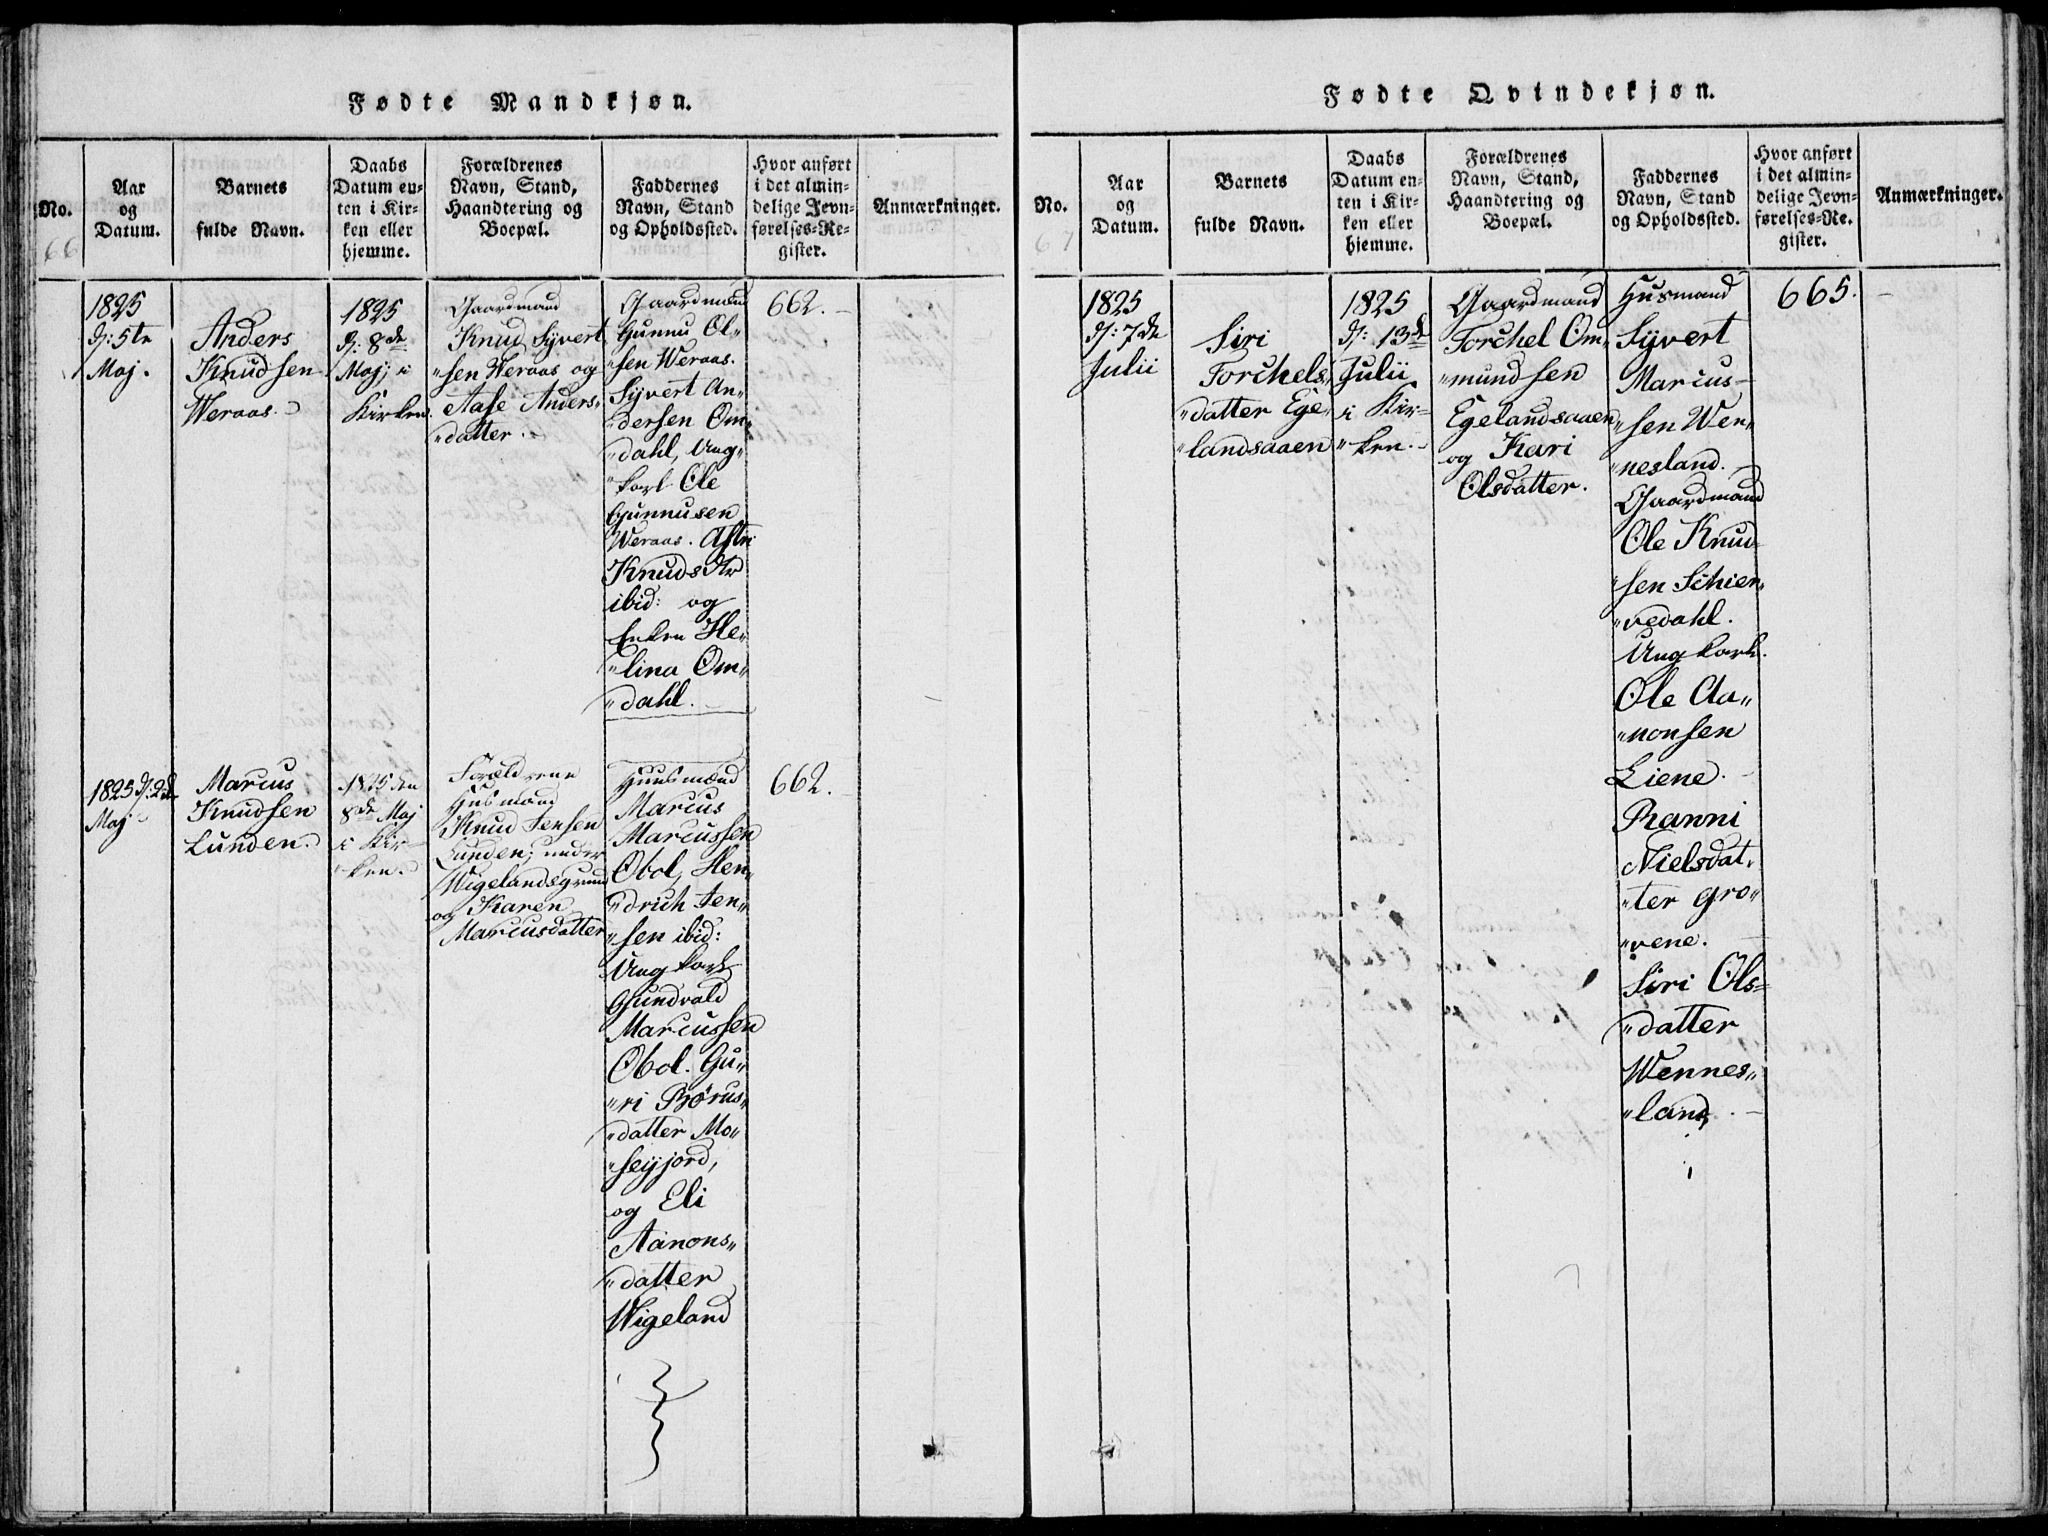 Fødte Mandkjøn.
No.
66
Aar
og
Datum.
Barnets
fulde Navn.
Daabs
Datum en-
ten i Kir-
ken eller
hjemme.
Forældrenes
Navn, Stand,
Haandtering og
Boepæl.
Faddernes
Navn, Stand
og Opholdssted.
Hvor anført
i det almin-
delige Jevn-
førelses-Re-
gister.
Anmærkninger.
1825
d: 5te
Maj.
Anders
Knudsen
Weraas.
1825
d: 8de
Maj; i
Kirken.
Gaardmand
Knud Syvert
"sen Weraas og
Aase Anders"
"datter.
Gaardmænd
Gunnu Ol"
"sen Weraas.
Syvert An"
"dersen Om"
"dahl, Ung"
"karl Ole
Gunnusen
Weraas. Astri
Knudsdtr
ibid: og
Enken He"
"lina Om"
"dahl.
662.
1825 d: 2de
Maj
Marcus
Knudsen
Lunden.
1825 den
8de Maj
i Kir-
"ken.
Forældrene
Husmand
Knud Jensen
Lunden; under
Wigelandsgrund
og Karen
Marcusdatter
Huusmænd
Marcus
Marcussen
Obol, Hen"
"drich Jen"
"sen ibid:
Ungkarl
Gundvald
Marcussen
Obol. Gu"
"ri Børus"
"datter Mo"
"seyjord,
og Eli
Aanons"
"datter
Wigeland
662.
Fødte Qvindekjøn.
No.
67
Aar
og
Datum.
Barnets
fulde Navn.
Daabs
Datum en-
ten i Kir-
ken eller
hjemme.
Forældrenes
Navn, Stand,
Haandtering og
Boepæl.
Faddernes
Navn, Stand
og Opholdssted.
Hvor anført
i det almin-
delige Jevn-
førelses-Re-
gister.
Anmærkninger.
1825
d: 7de
Julii
Siri
Torchels"
"datter Ege"
"landsaaen
1825
d: 13de
Julii
i Kir-
"ken.
Gaardmand
Torchel Om"
"mundsen
Egelandsaaen
og Kari
Olsdatter.
Husmand
Syvert
Marcus-
"sen Wen"
"nesland.
Gaardmand
Ole Knud-
"sen Schier"
"vedahl.
Ungkarl.
Ole Aa"
"nonsen
Liene.
Ranni
Nielsdat"
"ter Gro"
"vene.
Siri Ols=
"datter
Wennes"
"land.
665.